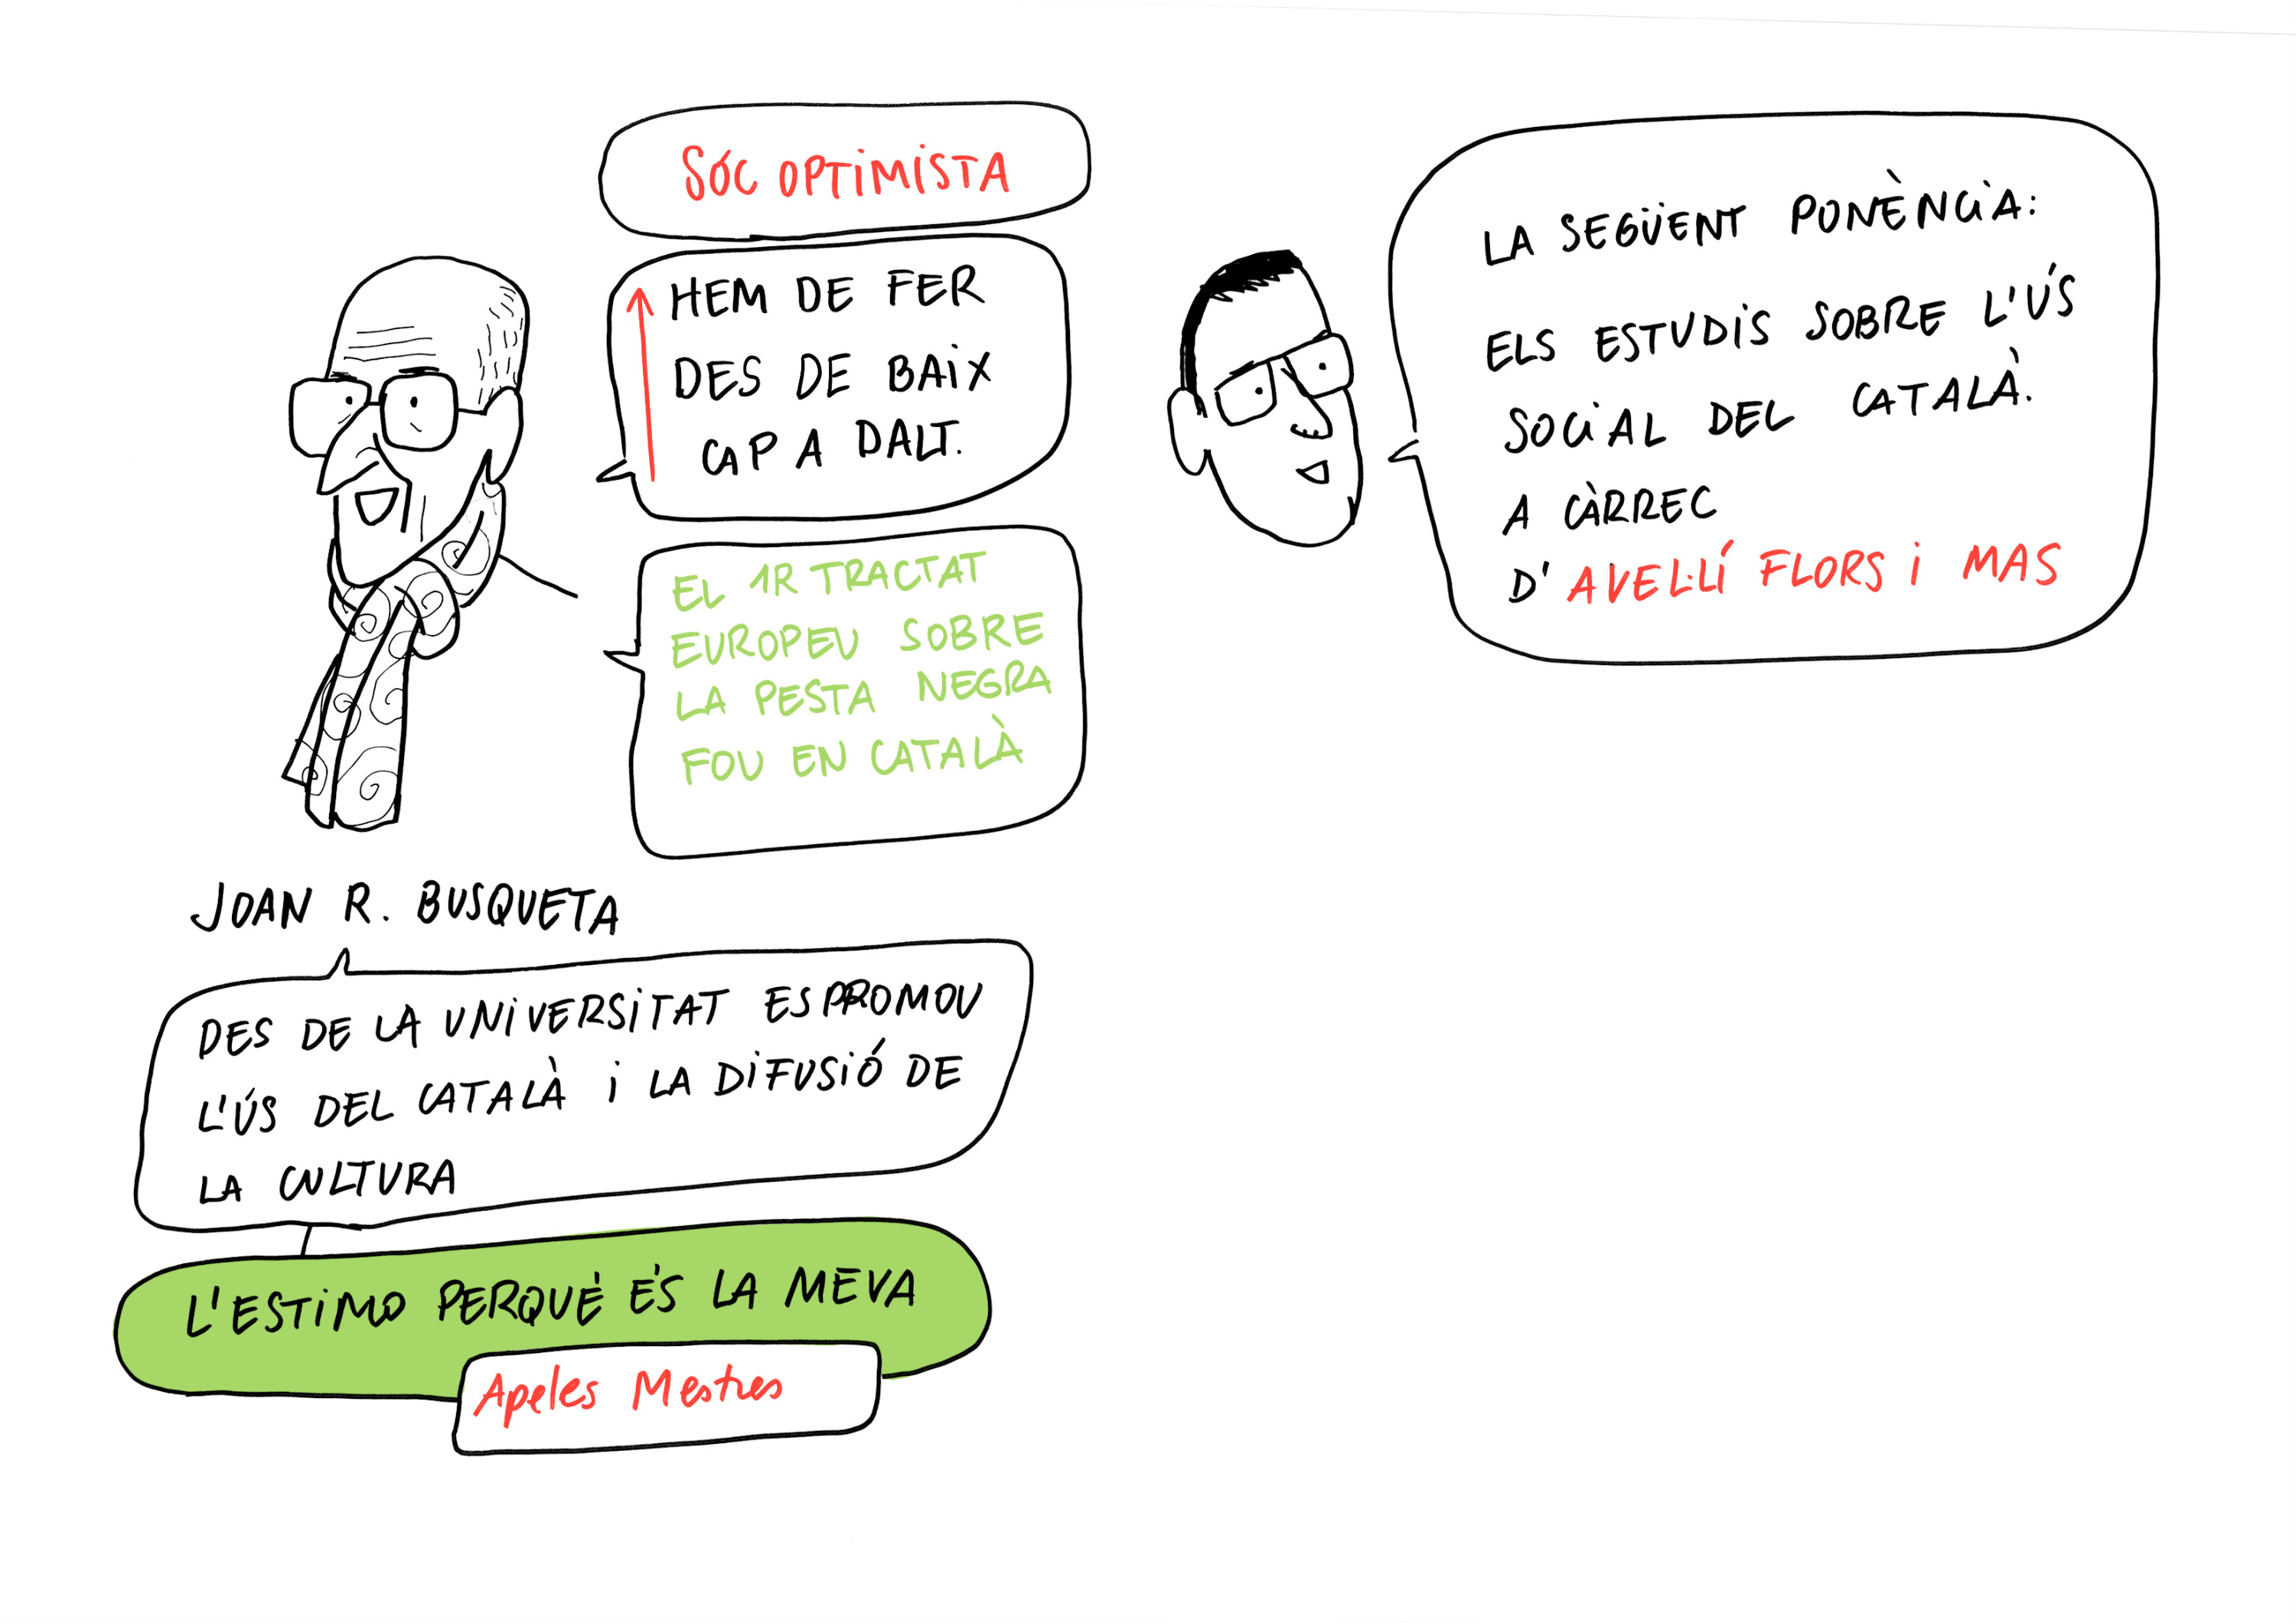 SÓC OPTIMISTA
HEM DE FER
DES DE BAIX
CAP A DALT.
EL 1R TRACTAT
EUROPEU SOBRE
LA PESTA NEGRA
FOU EN CATALÀ
JOAN R. BUSQUETA
DES DE LA UNIVERSITAT ES PROMOU
L'ÚS DEL CATALÀ I LA DIFUSIÓ DE
LA CULTURA
L'ESTIMO PERQUÈ ÉS LA MEVA
Apeles Mestres
LA SEGÜENT PONÈNCIA:
ELS ESTUDIS SOBRE L'ÚS
SOCIAL DEL CATALÀ.
A CÀRREC
D'AVEL·LÍ FLORS I MAS